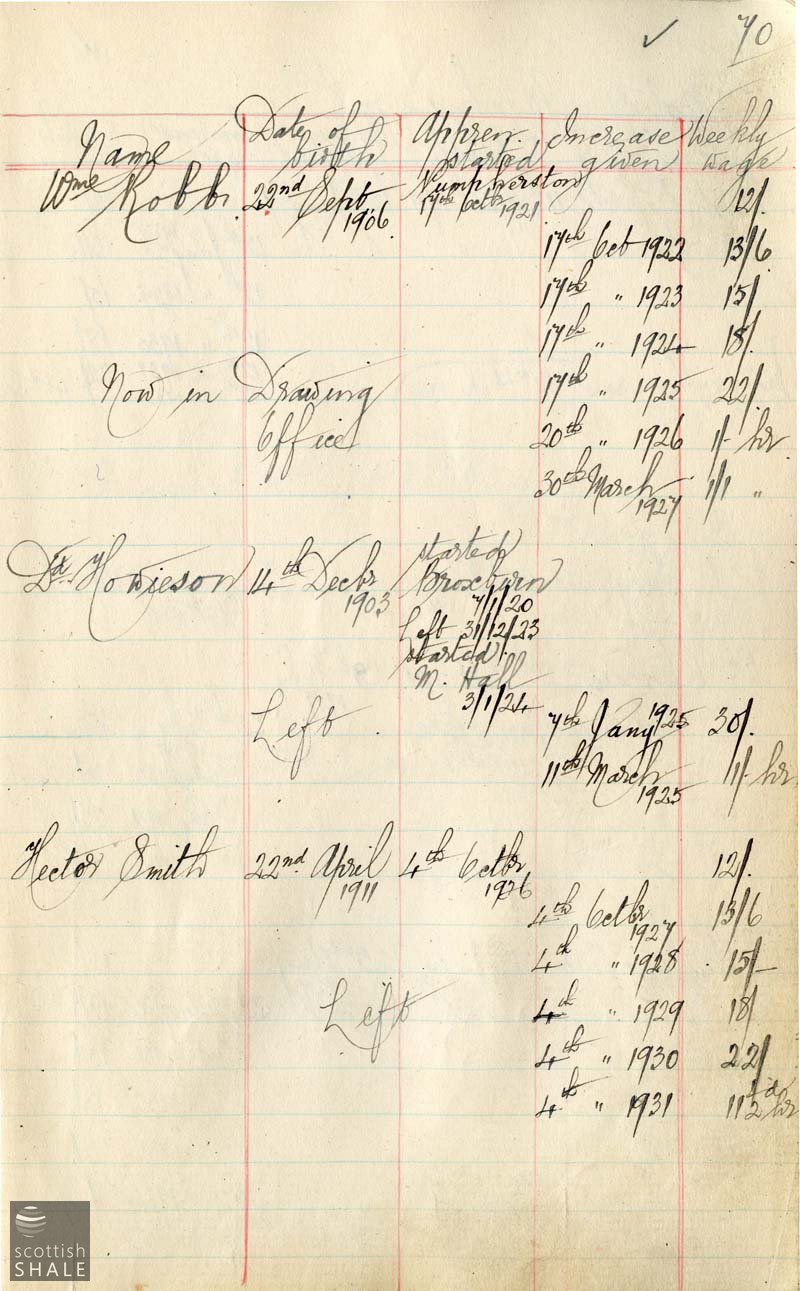 ✓ 70
Name Date of birth Appren. started Increase given Weekly wage
Wme Robb 22nd Sept 1906 Pumpherston 17th Octbr 1921 12/.
17th Oct 1922 13/6
17th " 1923 15/.
17th " 1924 18/.
Now in Drawing Office 17th " 1925 22/.
20th " 1926 1/- hr
30th March 1927 1/1 "
Dd. Howieson 14th Decbr 1903 started Broxburn
7/1/20
Left 31/12/23
started
M. Hall
3/1/24
Left. 7th Jany 1925 30/.
11th March 1925 1/- hr
Hector Smith 22nd April 1911 4th Octbr 1926 12/.
4th Octbr 1927 13/6
4th " 1928 15/-
Left 4th " 1929 18/
4th " 1930 22/
4th " 1931 11½d hr
scottish
SHALE